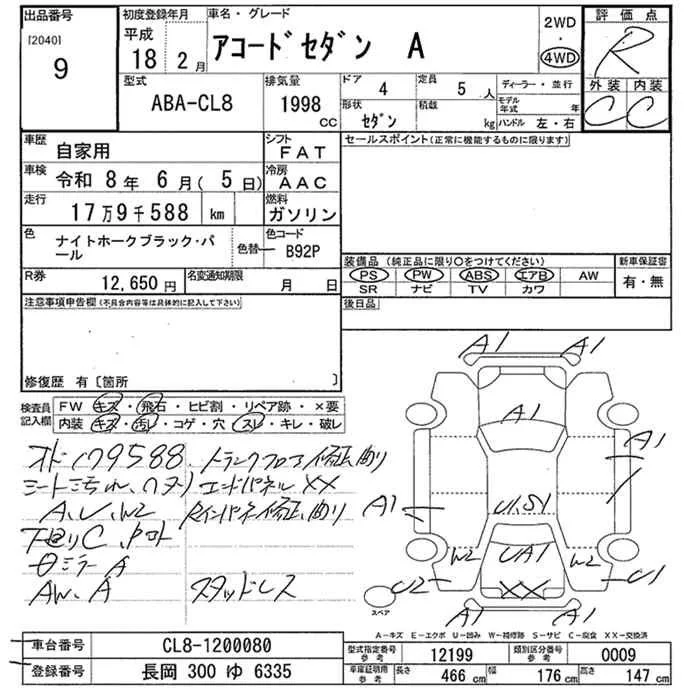 出品番号
[2040]
9
初度登録年月
平成
18 2月
車名・グレード
アコードセダン A
2WD
・
4WD
評価点
R
外装 内装
C C
型式
ABA-CL8
排気量
1998
CC
ドア 4
定員 5人
形状 セダン
積載 kg
ディーラー・並行
モデル年式 年
ハンドル 左・右
車歴 自家用
シフト FAT
車検 令和 8年 6月( 5日)
冷房 AAC
走行 17万9千588 km
燃料 ガソリン
色 ナイトホークブラック・パール
色替
色コード B92P
R券 12,650円
名変通知期限 月 日
セールスポイント(正常に機能するものに限ります)
装備品(純正品に限り○をつけてください)
PS PW ABS エアB AW
SR ナビ TV カワ
新車保証書
有・無
後日品
注意事項申告欄(不具合内容等は具体的に記入して下さい)
修復歴 有〔箇所
検査員記入欄
FW キズ・飛石・ヒビ割・リペア跡・×要
内装 キズ・汚レ・コゲ・穴・スレ・キレ・破レ
オド179588
トランクフロア修正、曲り
エンドパネルXX
A、U、W2
下廻りC
ミラーA
AW、A
スタッドレス
A1 A1
A1
A1
A1
U1.S1
W2 UA1 W2
U2 XX U1
A1 A1
スペア
A-キズ E-エクボ U-凹み W-補修跡 S-サビ C-腐食 XX-交換済
車台番号 CL8-1200080
登録番号 長岡 300 ゆ 6335
型式指定番号 参考 12199
類別区分番号 参考 0009
車庫証明用 参考 長さ 466 cm 幅 176 cm 高さ 147 cm